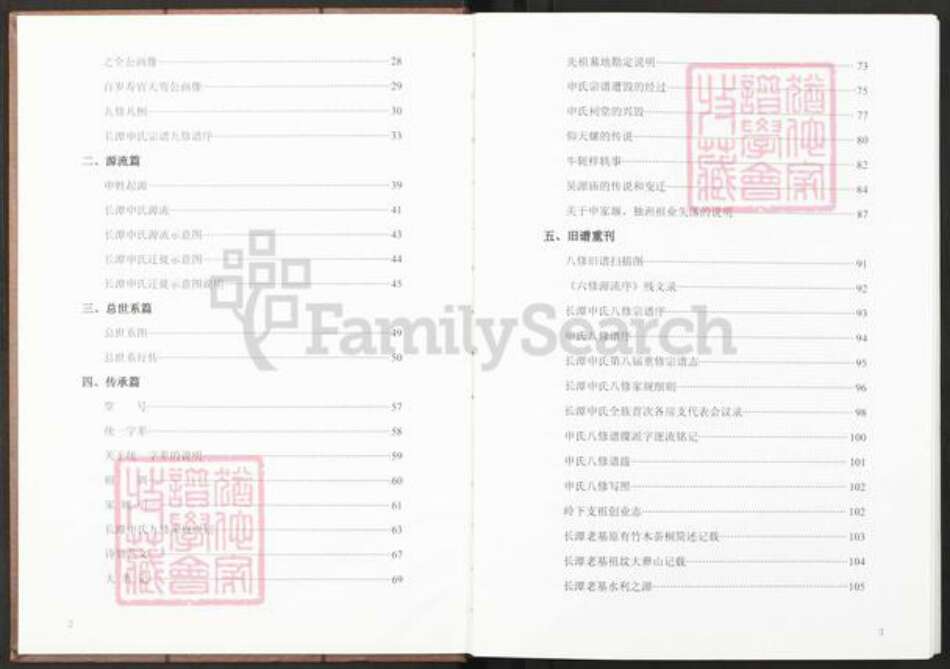 之全公画像 28
百岁寿官天寿公画像 29
九修凡例 30
长潭申氏宗谱九修谱序 33
二、源流篇
申姓起源 39
长潭申氏源流 41
长潭申氏源流示意图 43
长潭申氏迁徙示意图 44
长潭申氏迁徙示意图说明 45
三、总世系篇
总世系图 49
总世系行传 50
四、传承篇
堂 号 57
统一字辈 58
关于统一字辈的说明 59
60
61
长潭申氏九 63
67
69
2
先祖墓地勘定说明 73
申氏宗谱遭毁的经过 75
申氏祠堂的兴毁 77
仰天螺的传说 80
牛轭样轶事 82
吴源庙的传说和变迁 84
关于申家堰、独洲祖业失落的说明 87
五、旧谱重刊
八修旧谱扫描图 91
《六修源流序》残文录 92
长潭申氏八修宗谱序 93
申氏八修谱序 94
长潭申氏第八届重修宗谱志 95
长潭申氏八修家规细则 96
长潭申氏全族首次各房支代表会议录 98
申氏八修谱覆派字逐流铭记 100
申氏八修谱 101
申氏八修写照 102
岭下支祖创业志 102
长潭老基原有竹木茶桐简述记载 103
长潭老基祖坟大彝山记载 104
长潭老基水利之源 105
3
FamilySearch